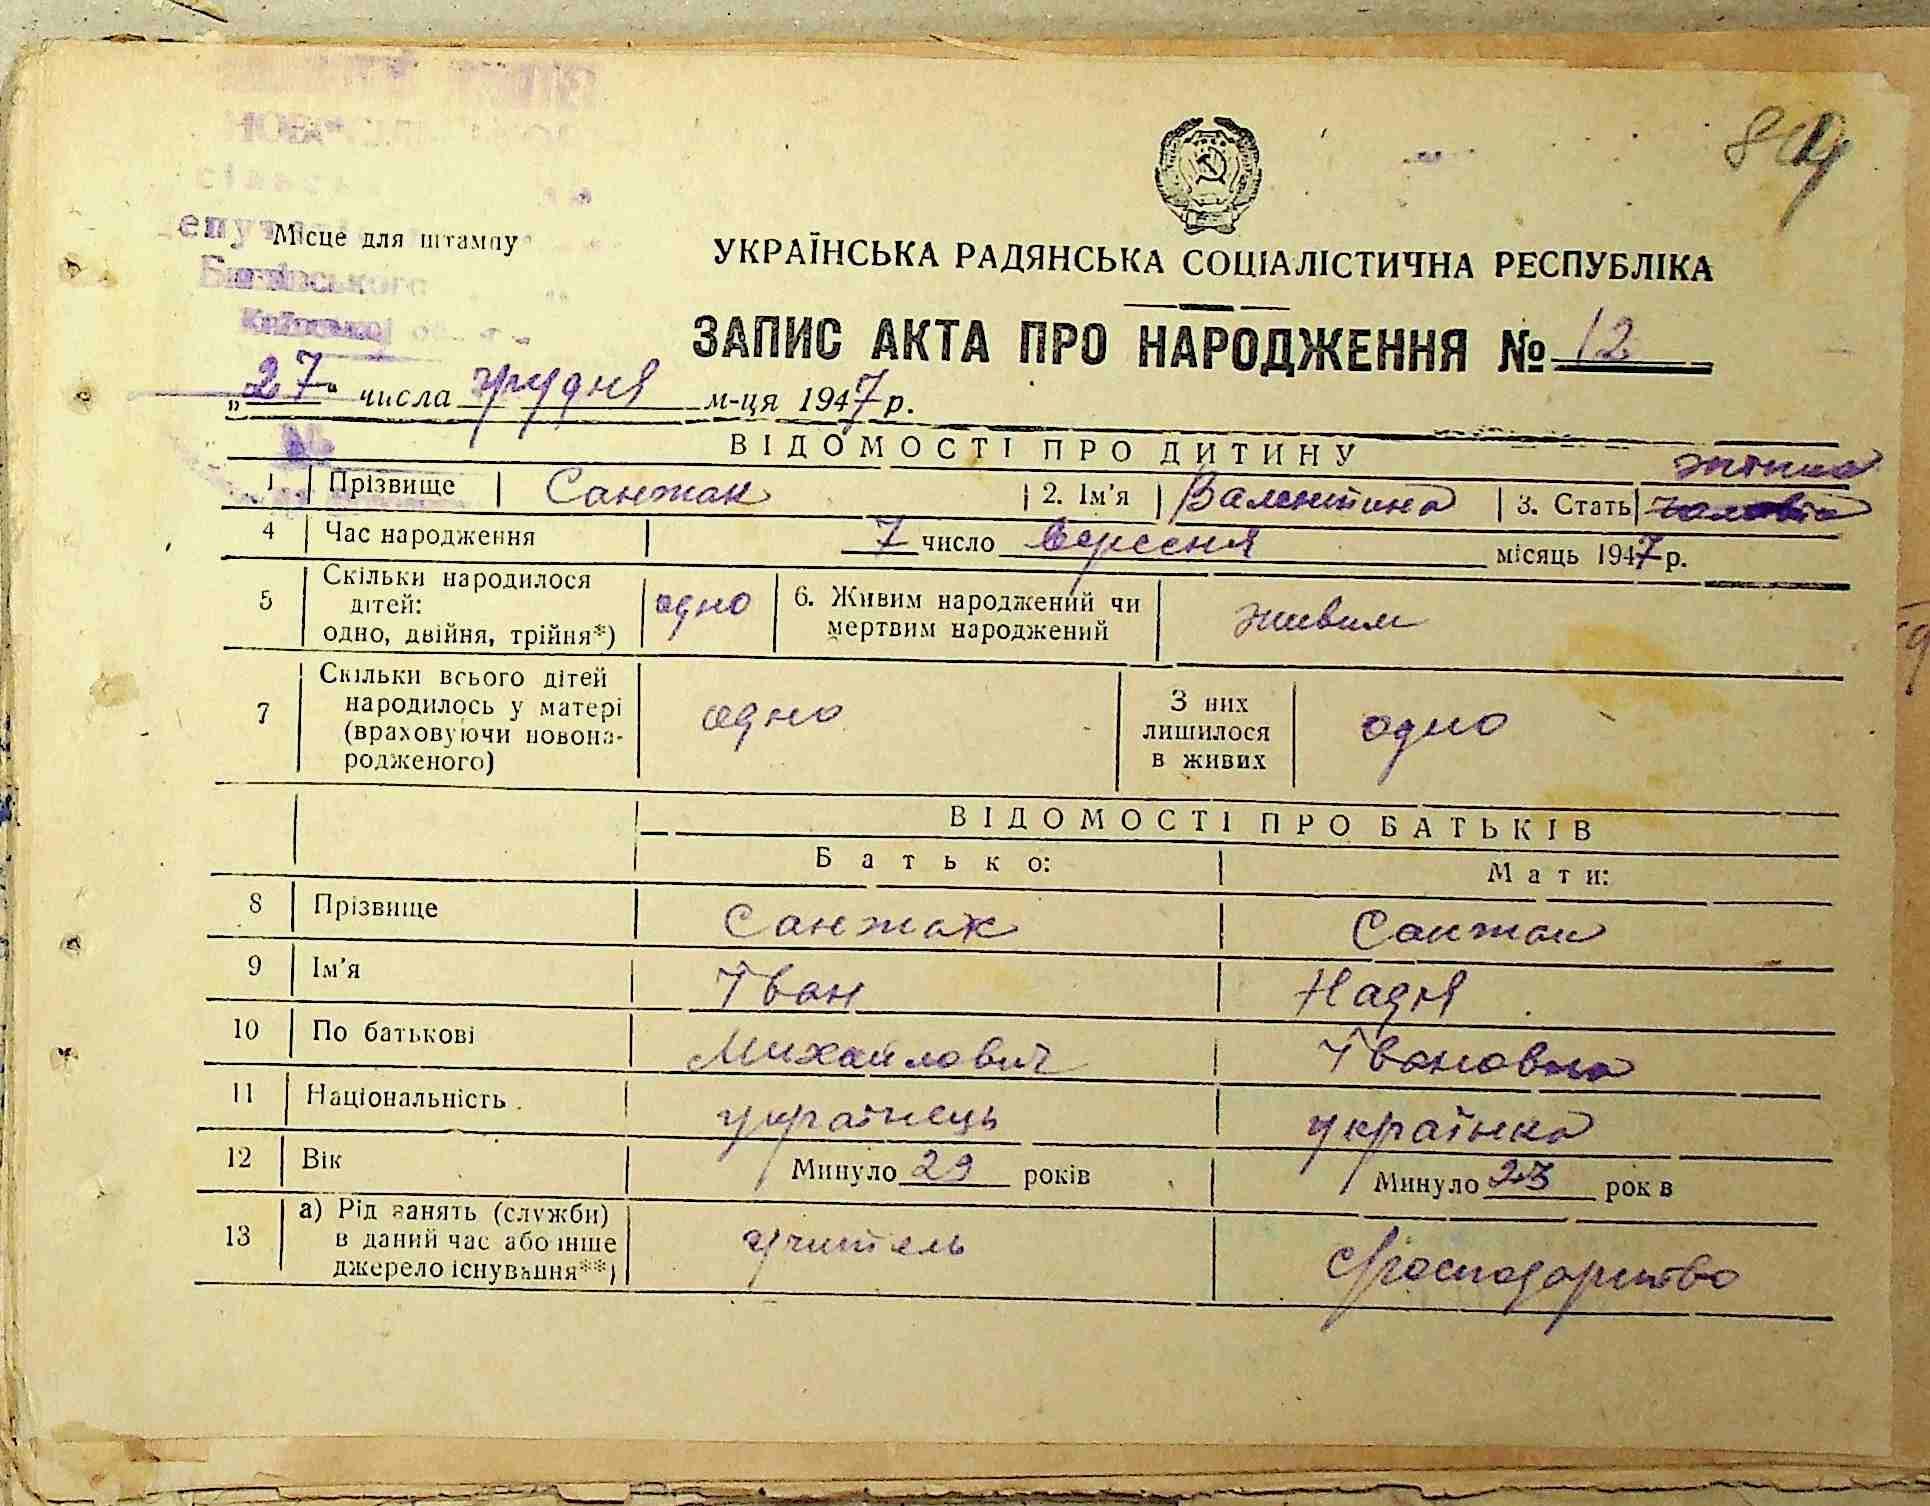 Місце для штампу
УКРАЇНСЬКА РАДЯНСЬКА СОЦІАЛІСТИЧНА РЕСПУБЛІКА
ЗАПИС АКТА ПРО НАРОДЖЕННЯ № 12
„27“ числа грудня м-ця 1947 р.
ВІДОМОСТІ ПРО ДИТИНУ
1 Прізвище Санжак 2. Ім'я Валентина 3. Стать жіноча
4 Час народження 7 число вересня місяць 1947 р.
5 Скільки народилося дітей: одно, двійня, трійня*) одно 6. Живим народжений чи мертвим народжений живим
7 Скільки всього дітей народилось у матері (враховуючи новонародженого) одно З них лишилося в живих одно
ВІДОМОСТІ ПРО БАТЬКІВ
Батько: Мати:
8 Прізвище Санжак Санжак
9 Ім'я Іван Надія
10 По батькові Михайлович Івановна
11 Національність українець українка
12 Вік Минуло 29 років Минуло 23 рок в
13 а) Рід занять (служби) в даний час або інше джерело існування**) учитель с/господарство